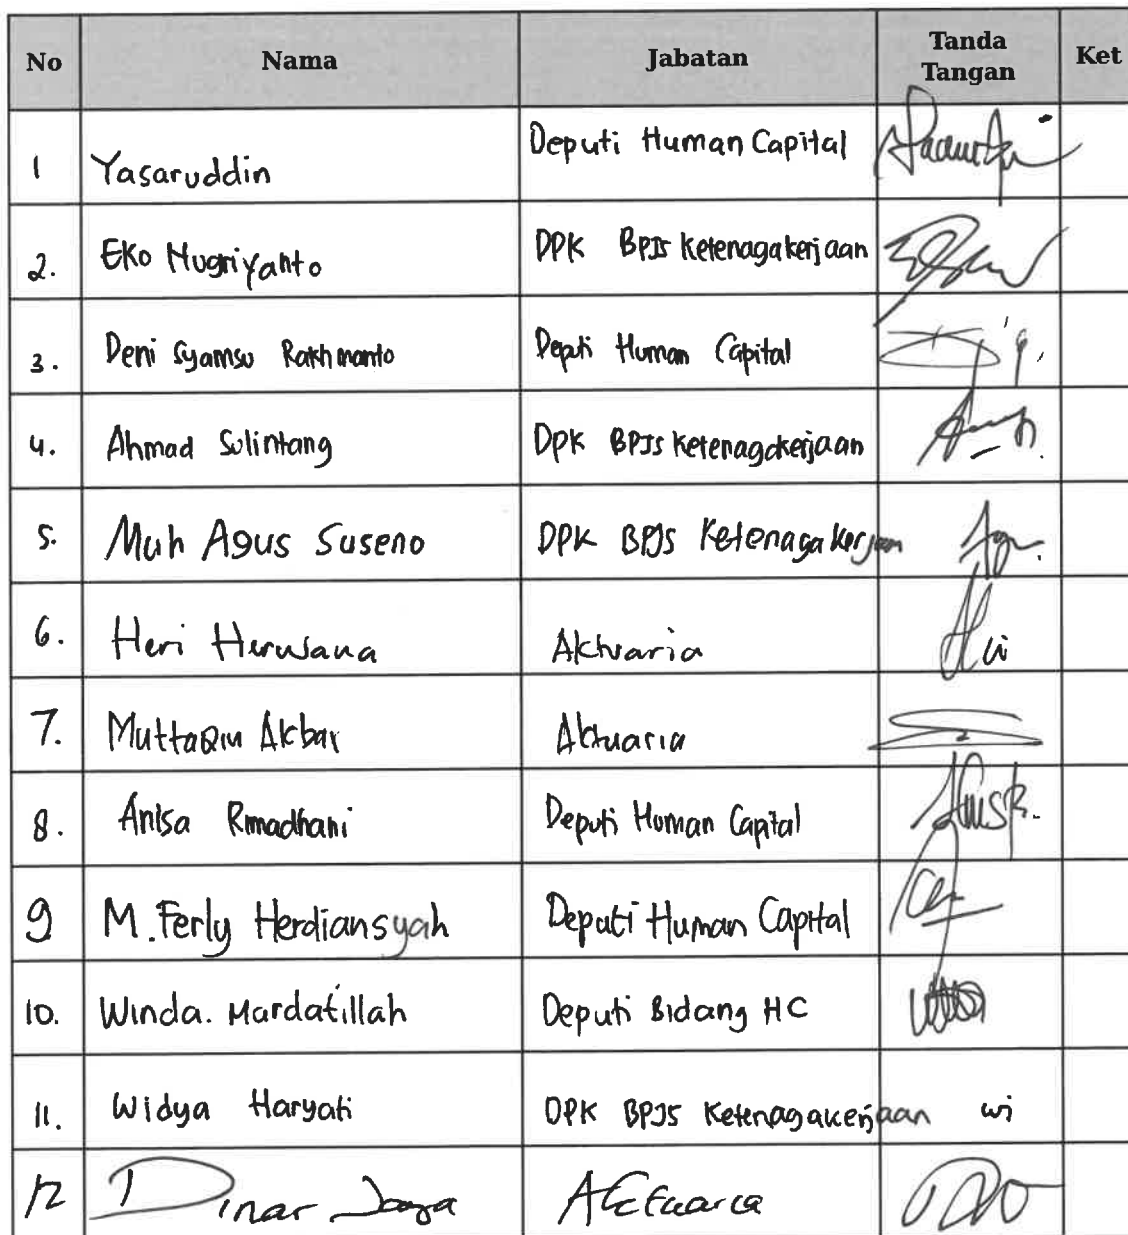 No Nama Jabatan Tanda Tangan Ket
1 Yasaruddin Deputi Human Capital
2. Eko Nugriyanto DPK BPJS Ketenagakerjaan
3. Deni Syamsu Rakhmanto Deputi Human Capital
4. Ahmad Sulintang DPK BPJS Ketenagakerjaan
5. Muh Agus Suseno DPK BPJS Ketenagakerjaan
6. Heri Herwana Aktuaria
7. Muttaqin Akbar Aktuaria
8. Anisa Rmadhani Deputi Human Capital
9 M. Ferly Herdiansyah Deputi Human Capital
10. Winda. Mardatillah Deputi Bidang HC
11. Widya Haryati DPK BPJS Ketenagakerjaan wi
12 Dinar Jaya Aktuaria